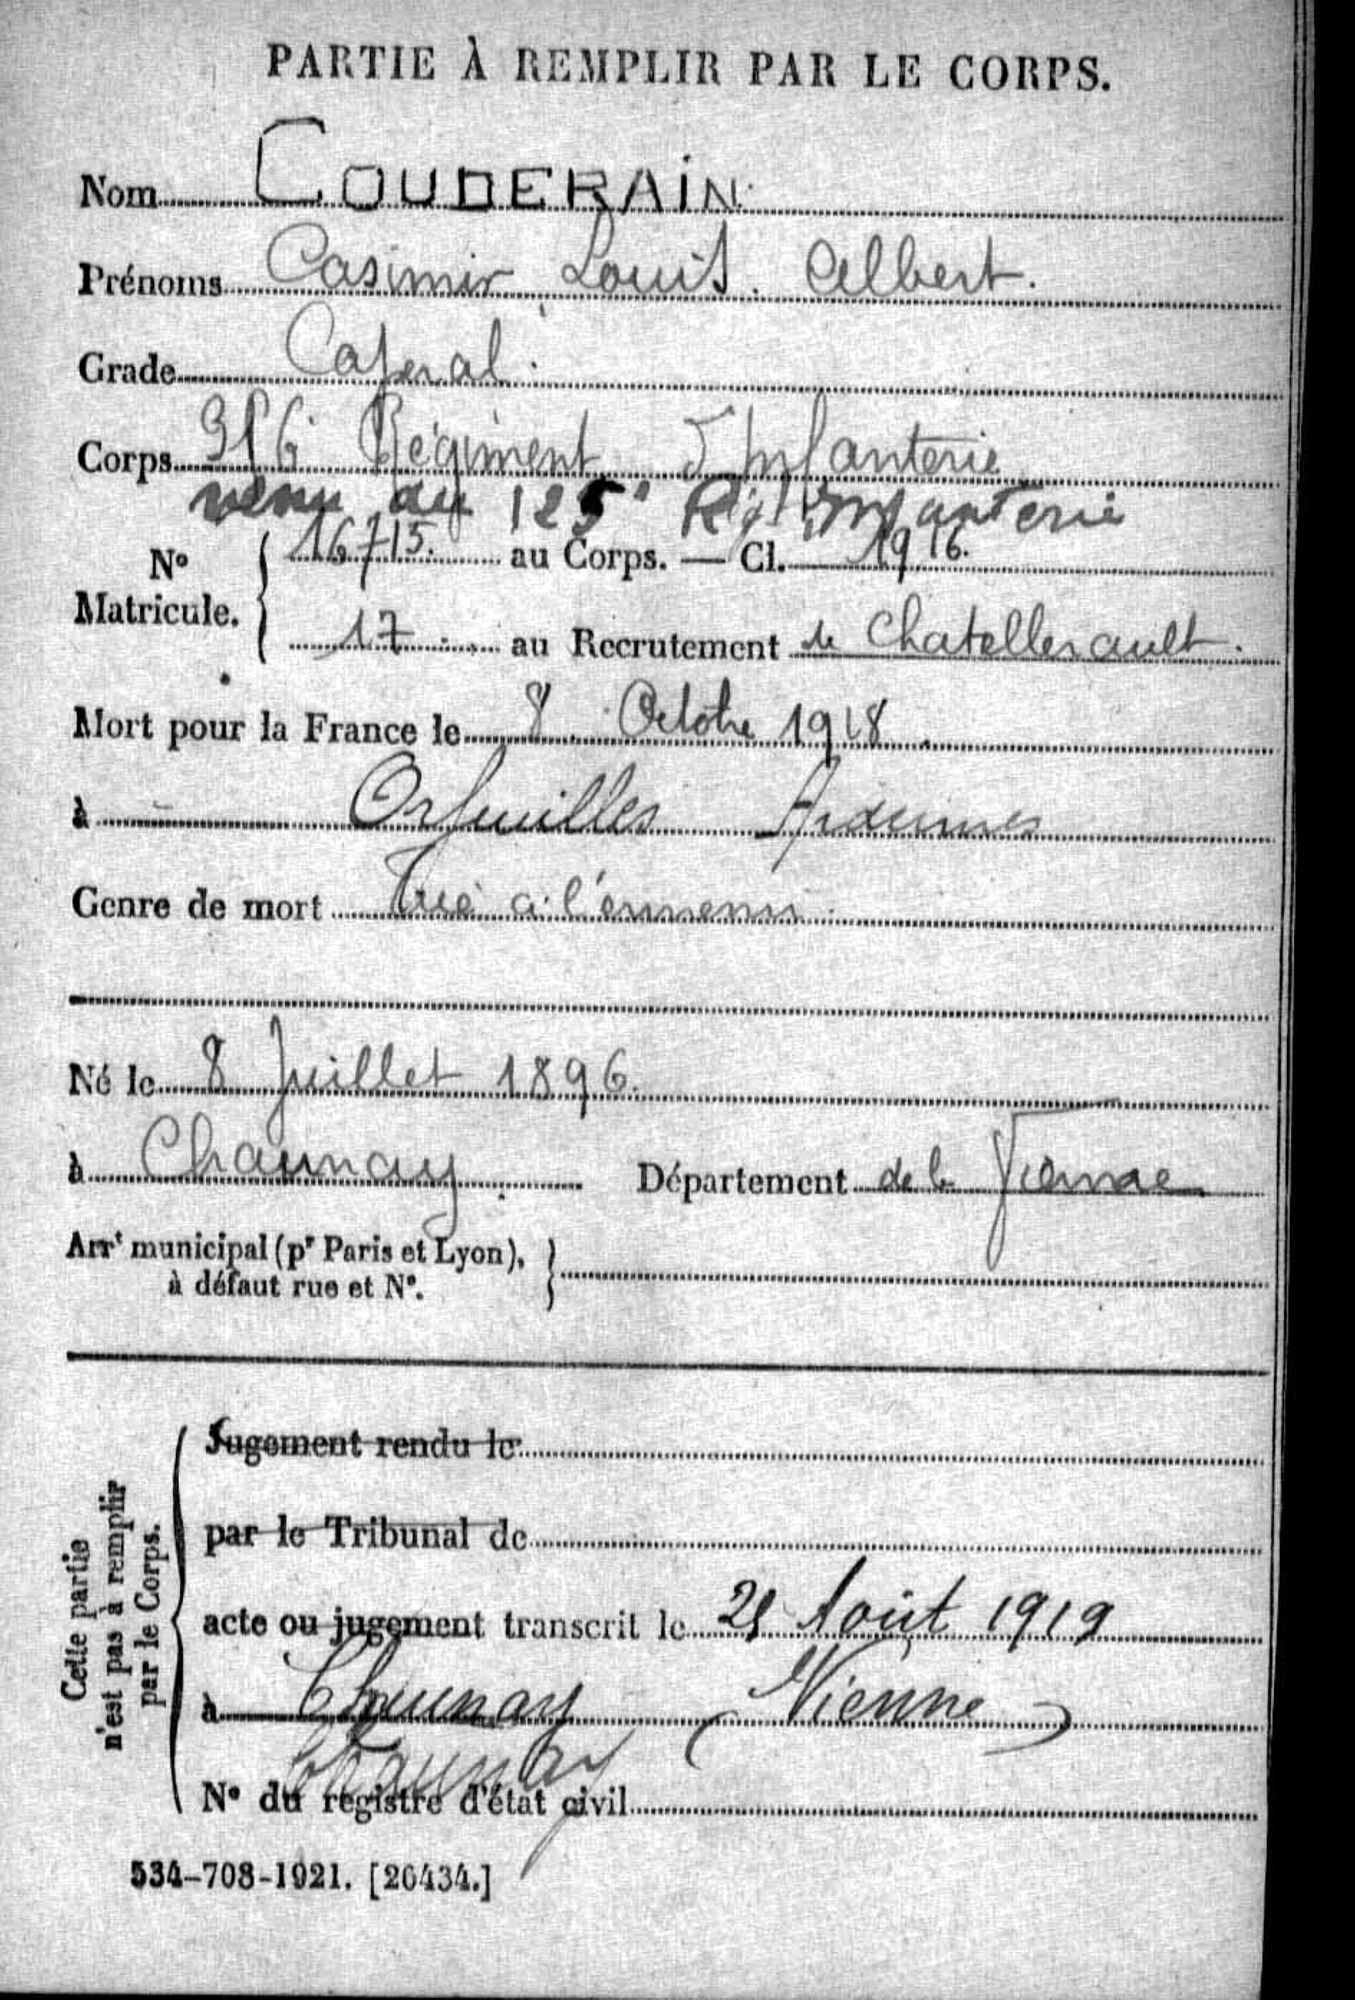 PARTIE À REMPLIR PAR LE CORPS.
Nom COUDERAIN
Prénoms Casimir Louis Albert.
Grade Caporal
Corps Régiment d'Infanterie
venu du 125e Rgt Infanterie
No Matricule. 16715 au Corps. — Cl. 1916.
17 au Recrutement de Chatellerault.
Mort pour la France le 8 Octobre 1918
à Orfeuilles Ardennes
Genre de mort Tué à l'ennemi
Né le 8 Juillet 1896.
à Chaunay Département de la Vienne
Arrt municipal (pr Paris et Lyon),
à défaut rue et N°.
Cette partie
n'est pas à remplir
par le Corps.
Jugement rendu le
par le Tribunal de
acte ou jugement transcrit le Août 1919
à Chaunay (Vienne)
Chaunay
N° du registre d'état civil
534-708-1921. [26434.]